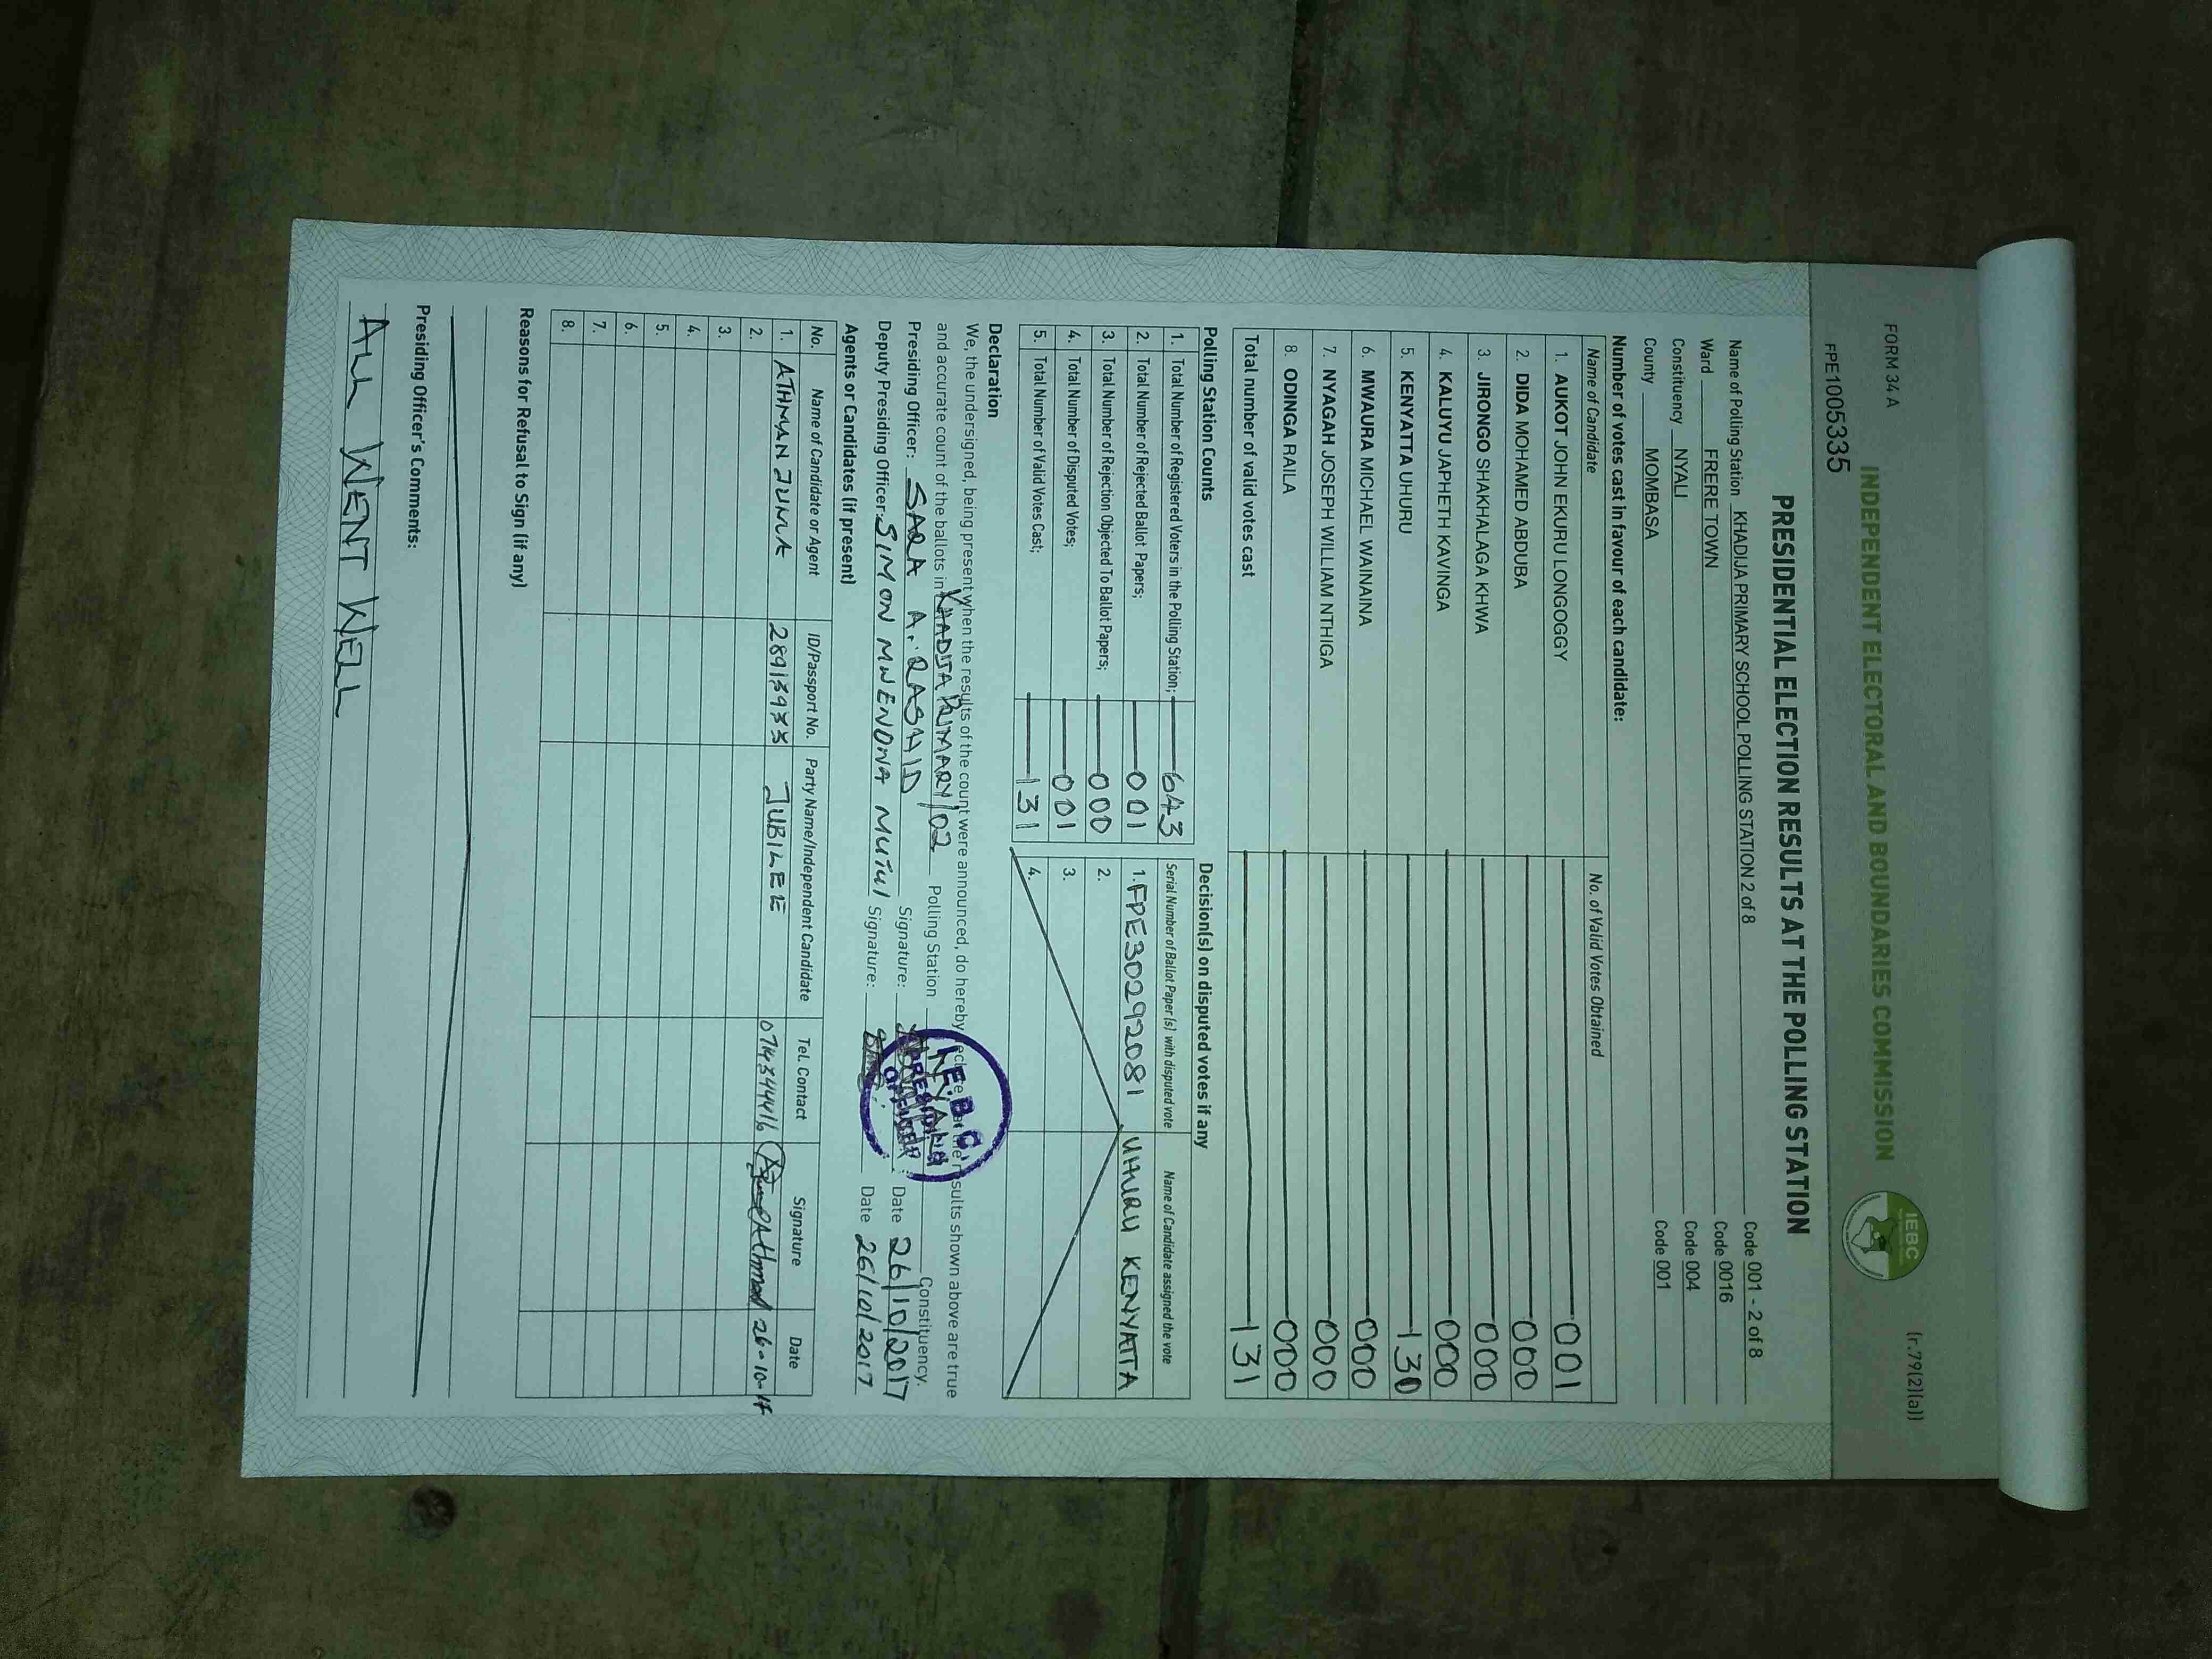 FORM 34 A
(r.79(2)(a))
INDEPENDENT ELECTORAL AND BOUNDARIES COMMISSION
IEBC
FPE1005335
PRESIDENTIAL ELECTION RESULTS AT THE POLLING STATION
Name of Polling Station KHADIJA PRIMARY SCHOOL POLLING STATION 2 of 8 Code 001 - 2 of 8
Ward FRERE TOWN Code 0016
Constituency NYALI Code 004
County MOMBASA Code 001
Number of votes cast in favour of each candidate:
Name of Candidate No. of Valid Votes Obtained
1. AUKOT JOHN EKURU LONGOGGY 001
2. DIDA MOHAMED ABDUBA 000
3. JIRONGO SHAKHALAGA KHWA 000
4. KALUYU JAPHETH KAVINGA 000
5. KENYATTA UHURU 130
6. MWAURA MICHAEL WAINAINA 000
7. NYAGAH JOSEPH WILLIAM NTHIGA 000
8. ODINGA RAILA 000
Total number of valid votes cast 131
Polling Station Counts Decision(s) on disputed votes if any
Serial Number of Ballot Paper (s) with disputed vote Name of Candidate assigned the vote
1. Total Number of Registered Voters in the Polling Station; 643 1. FPE300292081 UHURU KENYATTA
2. Total Number of Rejected Ballot Papers; 001 2.
3. Total Number of Rejection Objected To Ballot Papers; 000 3.
4. Total Number of Disputed Votes; 001 4.
5. Total Number of Valid Votes Cast; 131
Declaration
We, the undersigned, being present when the results of the count were announced, do hereby declare that the results shown above are true
and accurate count of the ballots in KHADIJA PRIMARY/02 Polling Station NYALI Constituency.
Presiding Officer: SARA A. RASHID Signature: Date 26/10/2017
Deputy Presiding Officer: SIMON MWENDWA MUTUI Signature: Date 26/10/2017
I.E.B.C.
PRESIDING
OFFICER
Agents or Candidates (if present)
No. Name of Candidate or Agent ID/Passport No. Party Name/Independent Candidate Tel. Contact Signature Date
1. ATHMAN JUMA 28913933 JUBILEE 0714344416 Athman 26-10-17
2.
3.
4.
5.
6.
7.
8.
Reasons for Refusal to Sign (if any)
Presiding Officer's Comments:
ALL WENT WELL